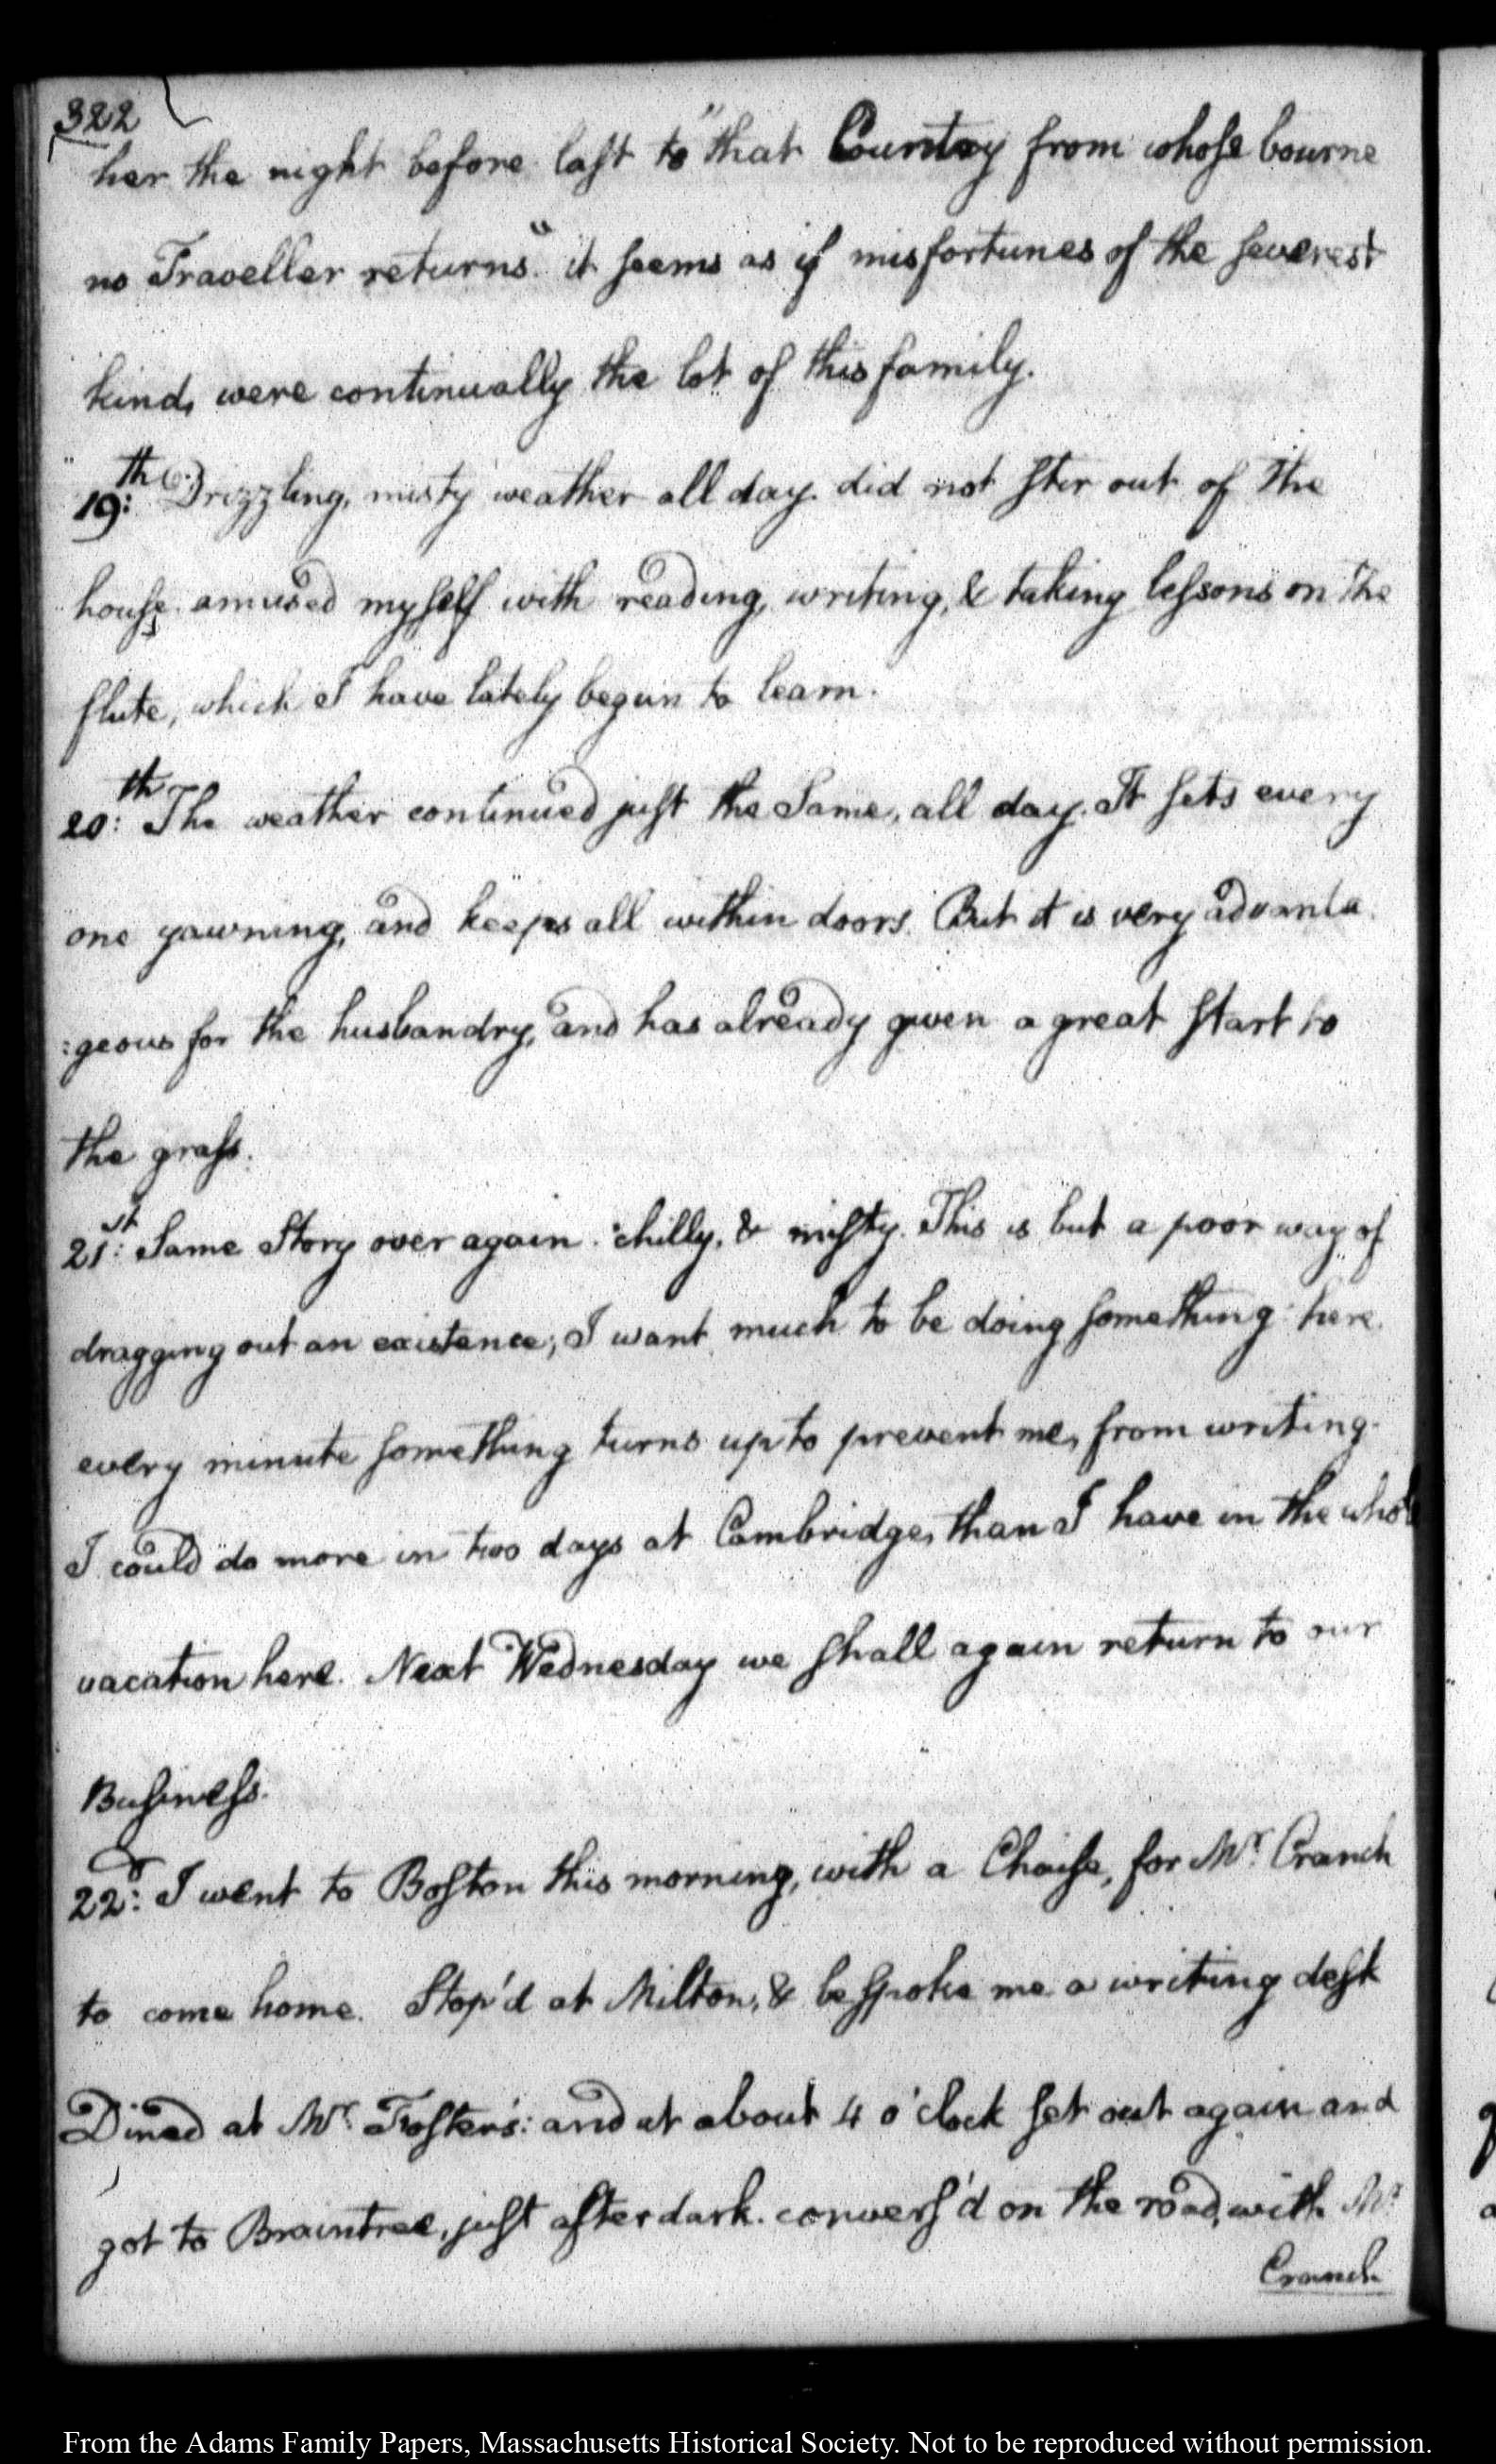 322
her the night before last to "that Country from whose bourne
no Traveller returns" it seems as if misfortunes of the severest
kind, were continually the lot of this family.
19:th Drizzling, misty weather all day. did not stir out of the
house. amused myself with reading, writing, & taking lessons on the
flute, which I have lately begun to learn.
20:th The weather continued just the Same, all day. It sets every
one yawning, and keeps all within doors. But it is very advanta
:geous for the husbandry, and has already given a great start to
the grass.
21:st Same Story over again. chilly, & misty. This is but a poor way of
dragging out an existence; I want much to be doing something: here.
every minute something turns up to prevent me, from writing.
I could do more in two days at Cambridge, than I have in the whole
vacation here. Next Wednesday we shall again return to our
Business.
22:d I went to Boston this morning, with a Chaise, for Mr. Cranch
to come home. Stop'd at Milton, & bespoke me a writing desk
Dined at Mr. Foster's: and at about 4 o'clock set out again and
got to Braintree, just after dark. convers'd on the road, with Mr.
Cranch
From the Adams Family Papers, Massachusetts Historical Society. Not to be reproduced without permission.